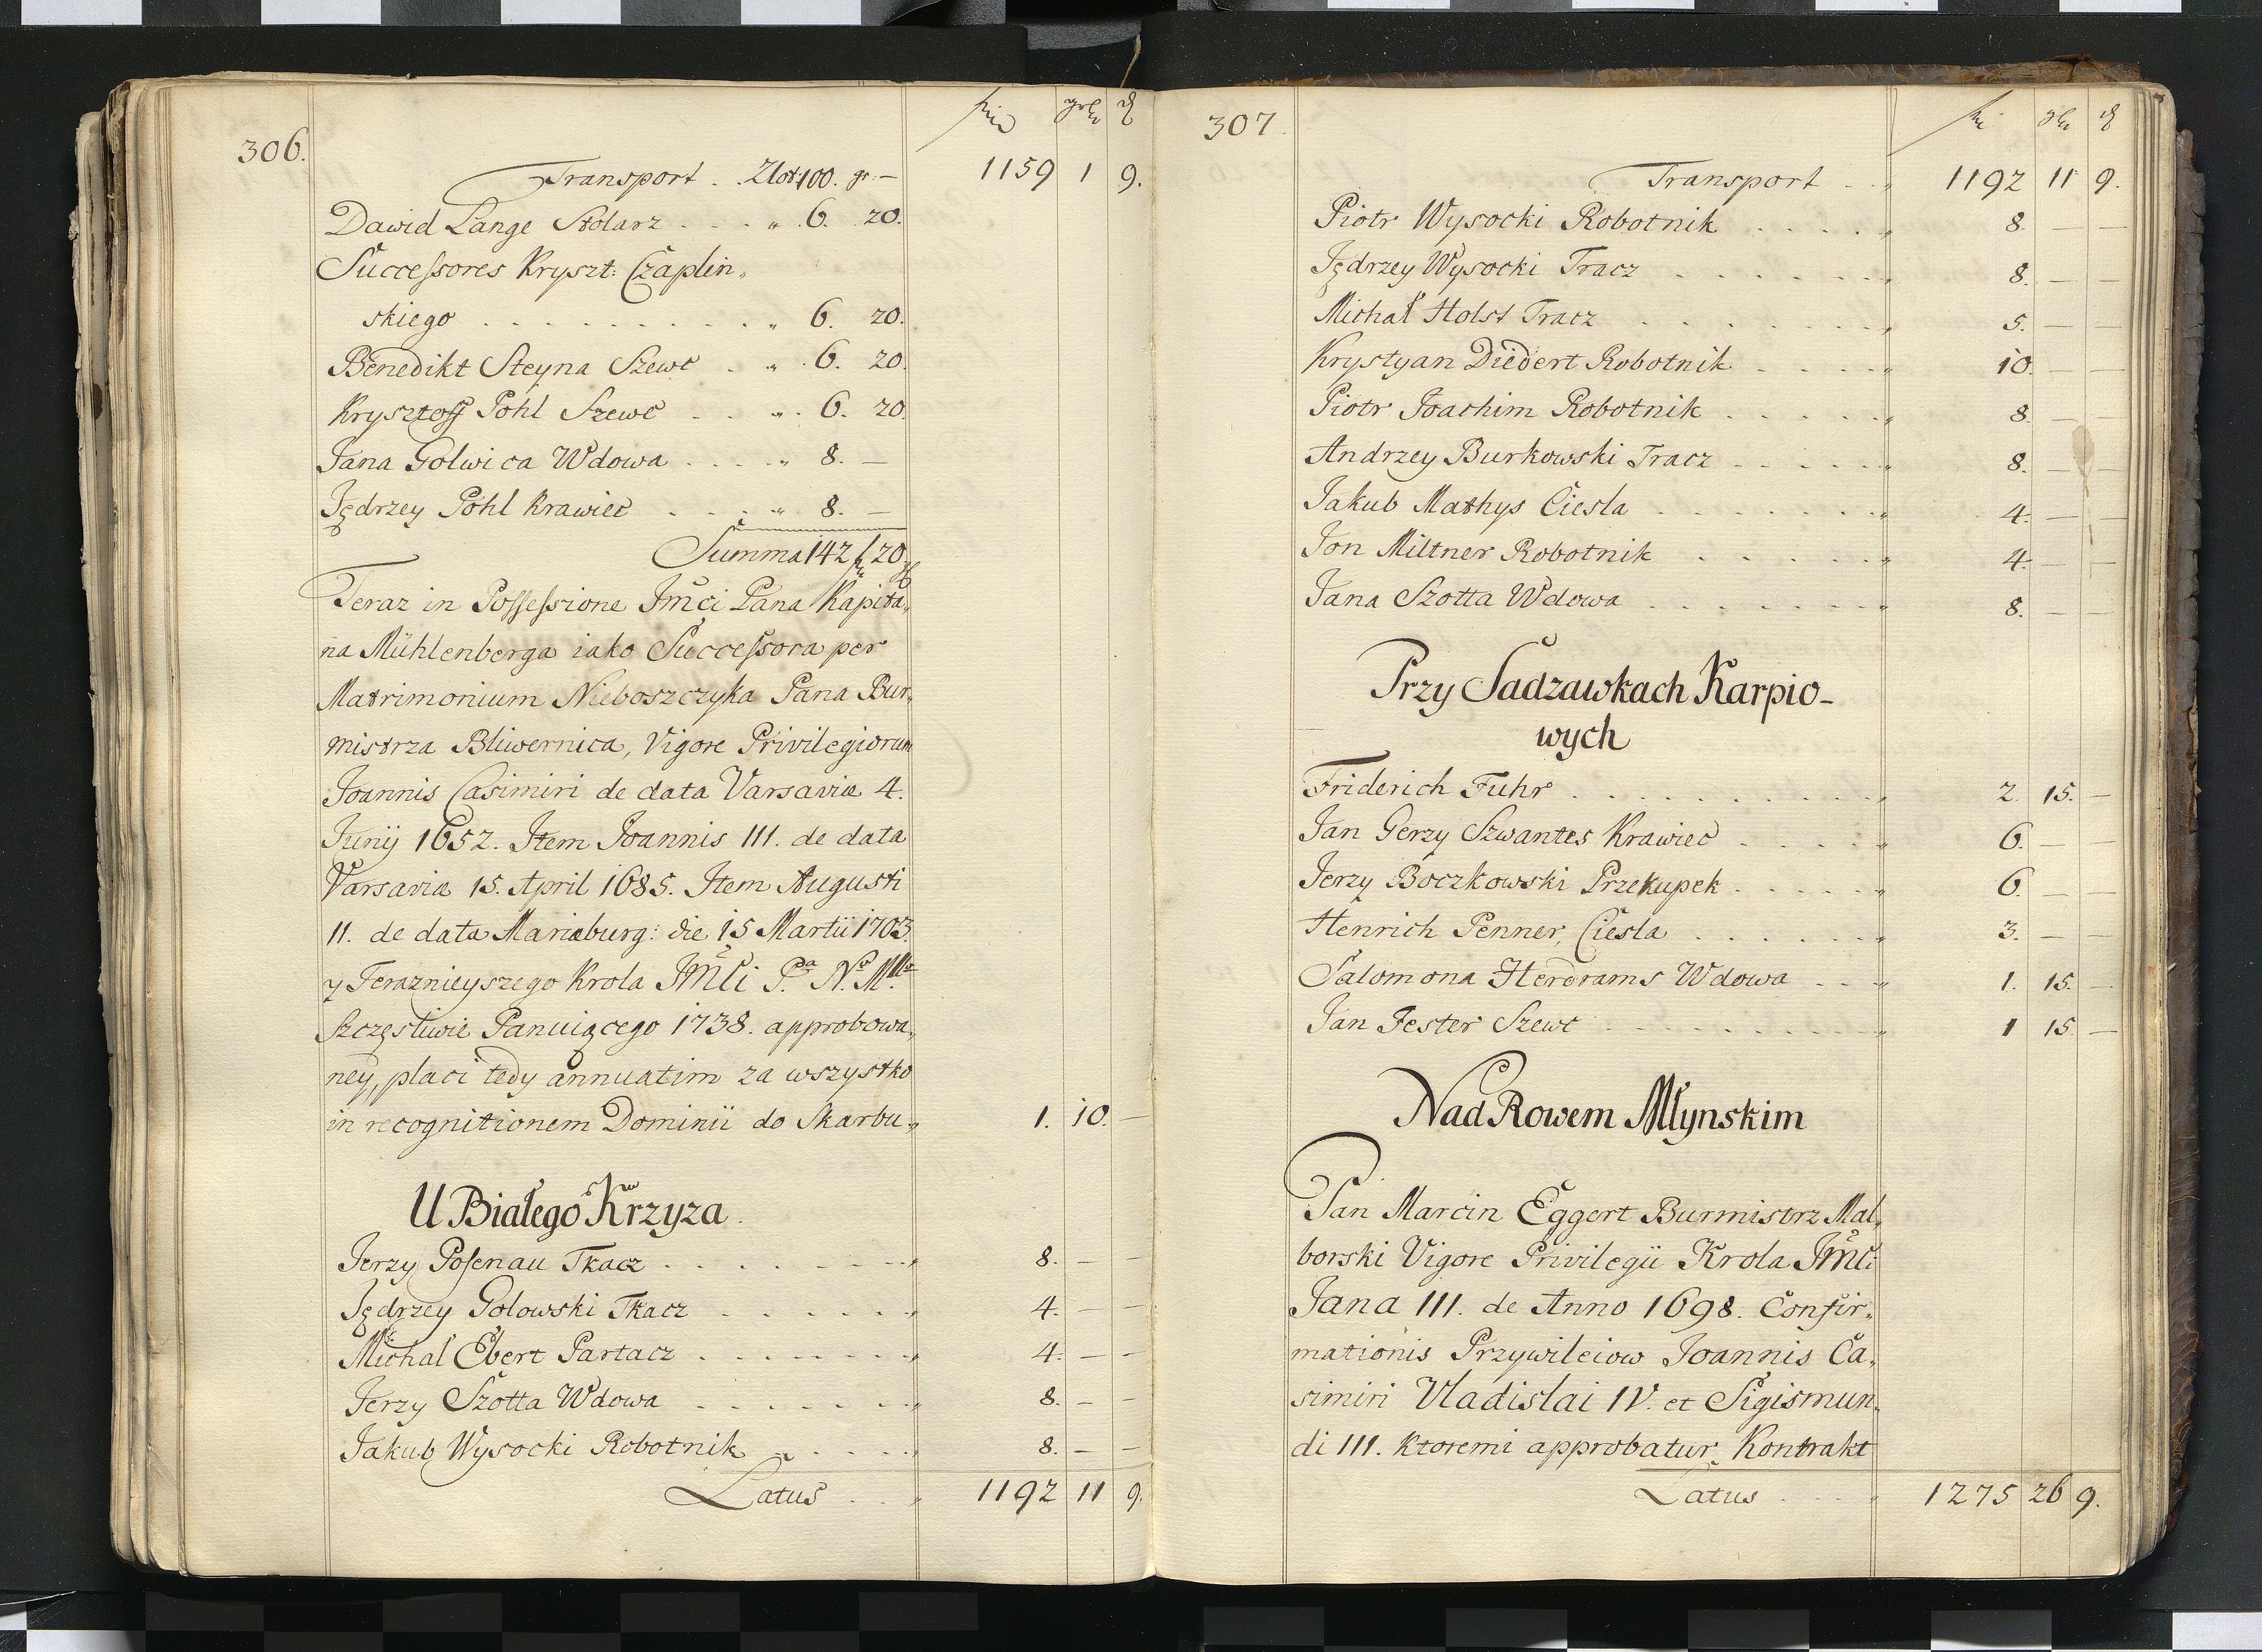 306.
Transport . . Zlot: 100. gr: — 1159 1 9.
Dawid Lange Stolarz . . . „ 6. 20.
Succeſsores Kryszt: Czaplin„
skiego . . . . . . . . . . „ 6. 20.
Benedikt Steyna Szewc . „ 6. 20.
Krysztoff Pohl Szewc . . „ 6. 20.
Jana Golwica Wdowa . . . . „ 8. —
Jędrzey Pohl Krawiec . . . „ 8. —
Summa 142 20
Teraz in Poſseſsione Jmci Pana Kapita„
na Mühlenberga iako Succeſsora per
Matrimonium Nieboszczyka Pana Bur„
mistrza Bliwernica, Vigore Privilegiorum
Joannis Casimiri de data Varsaviæ 4.
Junij 1652. Item Joannis III. de data
Varsaviæ 15. April 1685. Item Augusti
II. de data Mariæburg: die 15 Martii 1703.
y Teraznieyszego Krola JMCi Pa. No. Mo.
Szczęsliwie Panuiącego 1738. approbowa„
ney, placi tedy annuatim za wszystko
in recognitionem Dominii do Skarbu „ 1. 10. —
U Białego Krzyza
Jerzy Poſenau Tkacz . . . . . . . „ 8. — —
Jędrzey Golowski Tkacz . . . . . . „ 4. — —
Michał Ebert Partacz . . . . . . . „ 4. — —
Jerzy Szotta Wdowa . . . . . . . „ 8. — —
Jakub Wysocki Robotnik . . . . . „ 8. — —
Latus . . „ 1192 11 9.
307.
Transport . . „ 1192 11 9.
Piotr Wysocki Robotnik . . . . . „ 8. — —
Jędrzey Wysocki Tracz . . . . . . . „ 8. — —
Michał Holst Tracz . . . . . . . „ 5. — —
Krystyan Diedert Robotnik . . . . „ 10. — —
Piotr Joachim Robotnik . . . . . „ 8. — —
Andrzey Burkowski Tracz . . . . . „ 8. — —
Jakub Mathys Ciesla . . . . . . . „ 4. — —
Jon Miltner Robotnik . . . . . . „ 4. — —
Jana Szotta Wdowa . . . . . . . „ 8. — —
Przy Sadzawkach Karpio-
wych
Friderich Fuhr . . . . . . . . . . „ 2. 15. —
Jan Gerzy Szwantes Krawiec . . . . „ 6. — —
Jerzy Boczkowski Przekupek . . . . . „ 6. — —
Henrich Penner, Ciesla . . . . . . „ 3. — —
Salomona Herdrams Wdowa . . . „ 1. 15. —
Jan Fester Szewc . . . . . . . . . „ 1 15. —
Nad Rowem Młynskim
Pan Marcin Eggert Burmistrz Mal„
borski Vigore Privilegii Krola JMCi
Jana III. de Anno 1698. Confir„
mationis Przywileiow Joannis Ca„
simiri Vladislai IV. et Sigismun„
di III. Ktoremi approbatur Kontrakt
Latus . . . „ 1275 26 9.